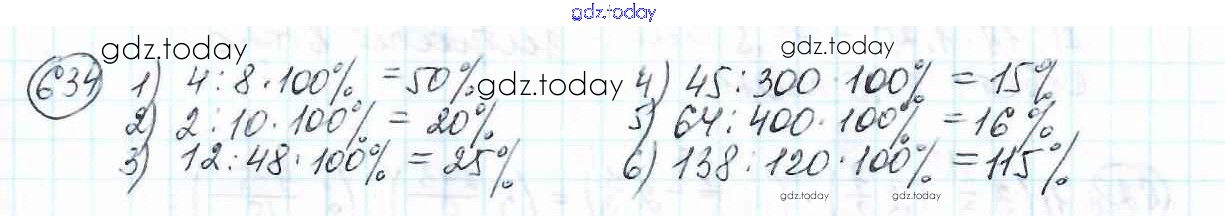 gdz.today
gdz.today gdz.today
634 1) 4:8·100% = 50% gdz.today 4) 45:300·100% = 15%
2) 2:10·100% = 20% 5) 64:400·100% = 16%
3) 12:48·100% = 25% 6) 138:120·100% = 115%
gdz.today gdz.today